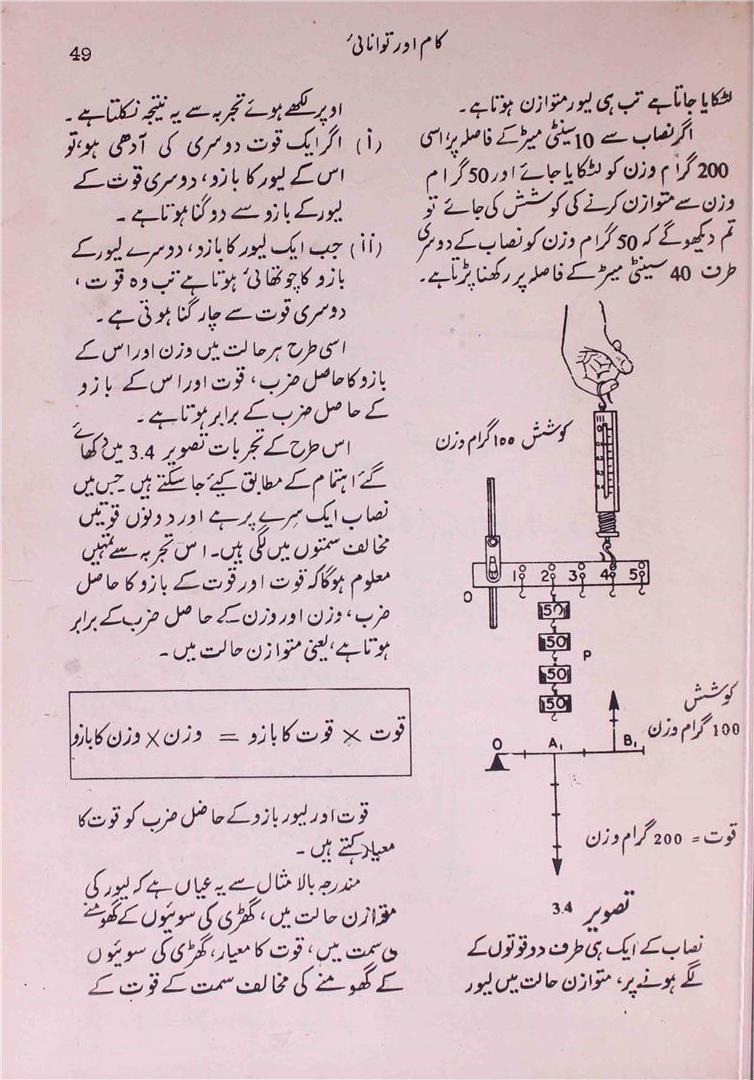 49
کام اور توانائی
لٹکایا جاتا ہے تب ہی لیور متوازن ہوتا ہے۔
اگر نصاب سے 10 سینٹی میٹر کے فاصلہ پر، اسی
200 گرام وزن کو لٹکایا جائے اور 50 گرام
وزن سے متوازن کرنے کی کوشش کی جائے تو
تم دیکھو گے کہ 50 گرام وزن کو نصاب کے دوسری
طرف 40 سینٹی میٹر کے فاصلہ پر رکھنا پڑتا ہے۔
کوشش ۱۰۰ گرام وزن
O 1 2 3 4 5
50
50
P
50
50
کوشش
100 گرام وزن
O A₁ B₁
قوت = 200 گرام وزن
تصویر 3.4
نصاب کے ایک ہی طرف دو قوتوں کے
لگے ہونے پر، متوازن حالت میں لیور
اوپر لکھے ہوئے تجربہ سے یہ نتیجہ نکلتا ہے۔
(i) اگر ایک قوت دوسری کی آدھی ہو، تو
اس کے لیور کا بازو، دوسری قوت کے
لیور کے بازو سے دوگنا ہوتا ہے۔
(ii) جب ایک لیور کا بازو، دوسرے لیور کے
بازو کا چوتھائی ہوتا ہے تب وہ قوت،
دوسری قوت سے چار گنا ہوتی ہے۔
اسی طرح ہر حالت میں وزن اور اس کے
بازو کا حاصل ضرب، قوت اور اس کے بازو
کے حاصل ضرب کے برابر ہوتا ہے۔
اس طرح کے تجربات تصویر 3.4 میں دکھائے
گئے اہتمام کے مطابق کیے جا سکتے ہیں جس میں
نصاب ایک سرے پر ہے اور دونوں قوتیں
مخالف سمتوں میں لگی ہیں۔ اس تجربہ سے تمہیں
معلوم ہوگا کہ قوت اور قوت کے بازو کا حاصل
ضرب، وزن اور وزن کے حاصل ضرب کے برابر
ہوتا ہے، یعنی متوازن حالت میں۔
قوت × قوت کا بازو = وزن × وزن کا بازو
قوت اور لیور بازو کے حاصل ضرب کو قوت کا
معیار کہتے ہیں۔
مندرجہ بالا مثال سے یہ عیاں ہے کہ لیور کی
متوازن حالت میں، گھڑی کی سوئیوں کے گھومنے
کی سمت میں، قوت کا معیار، گھڑی کی سوئیوں
کے گھومنے کی مخالف سمت کے قوت کے